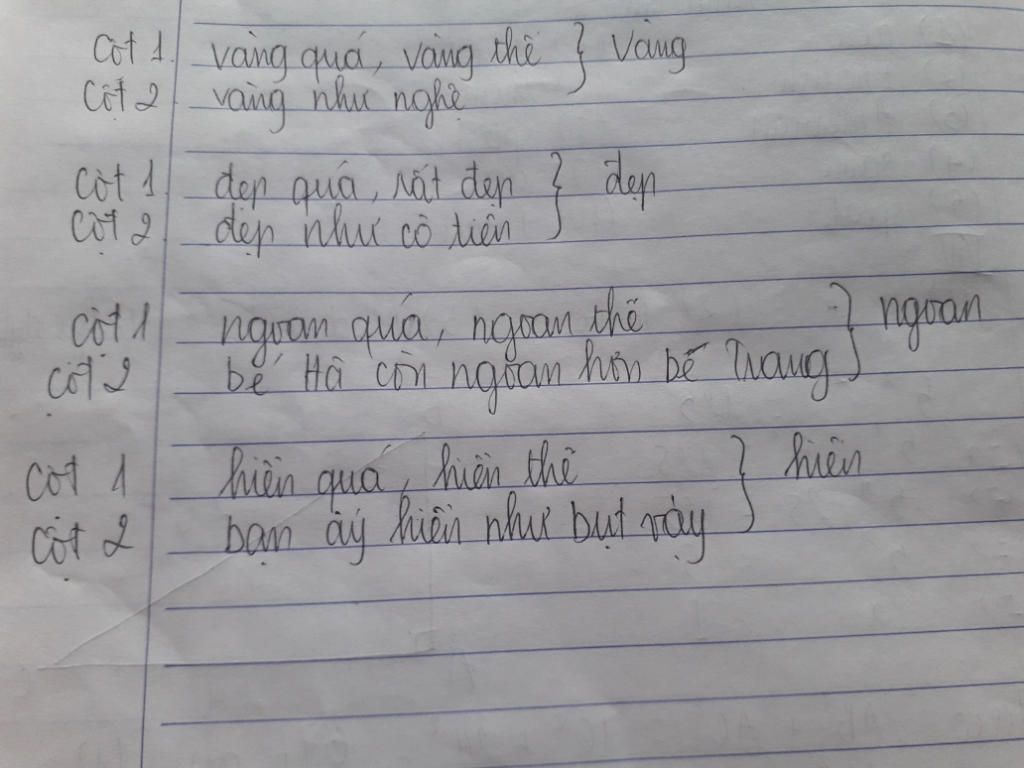 Cột 1 vàng quá, vàng thế } vàng
Cột 2 vàng như nghệ
Cột 1 đẹp quá, rất đẹp } đẹp
Cột 2 đẹp như cô tiên
Cột 1 ngoan quá, ngoan thế } ngoan
Cột 2 bé Hà còn ngoan hơn bé Trang
Cột 1 hiền quá, hiền thế } hiền
Cột 2 bạn ấy hiền như bụt vậy